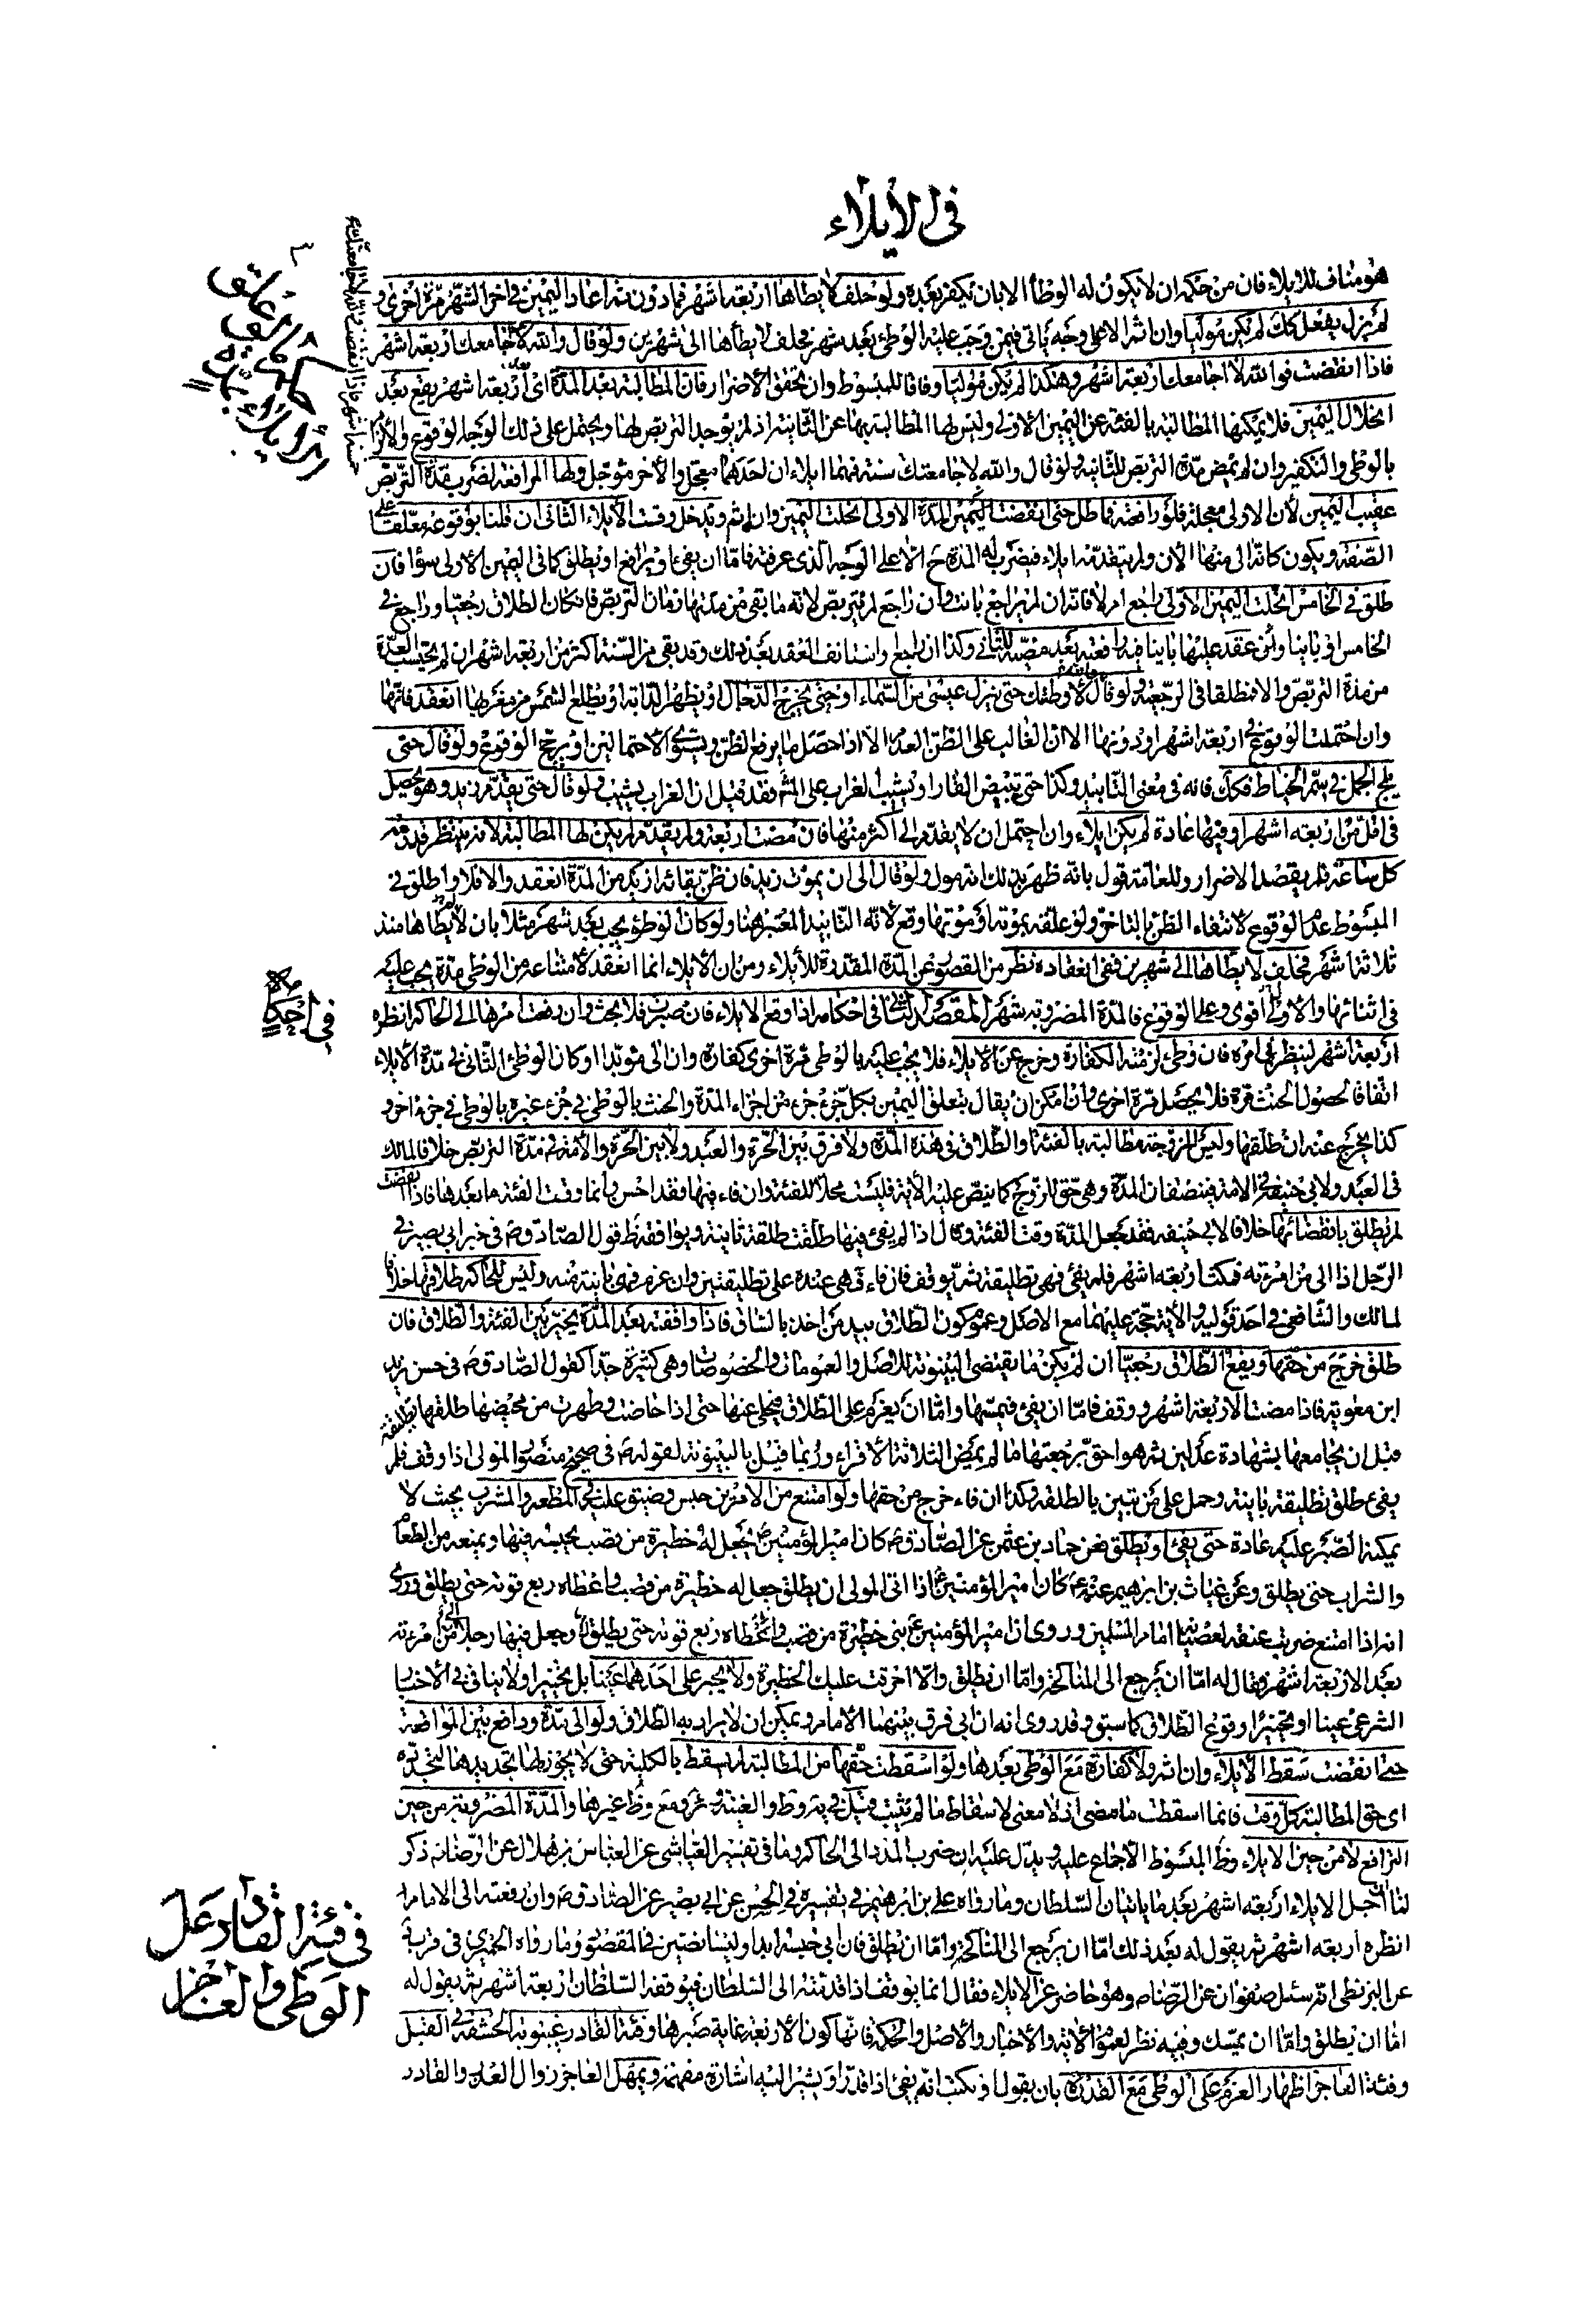 في الايلاء
هو مناف للايلاء فان من حكمه ان لا يكون له الوطأ الا بان يكفر بعده ولو حلف لا يطاها اربعة اشهر فما دون ثم اعاد اليمين في اخر الشهر مرة اخرى و
لم يزل يفعل كك لم يكن موليا وان اثر الا على وجه ياتي فيمن وجب عليه الوطئ بعد شهر فحلف لا يطأها الى شهرين ولو قال والله لا جامعتك اربعة اشهر
فاذا انقضت فوالله لا اجامعك اربعة اشهر وهكذا لم يكن موليا وفاقا للمبسوط وان تحقق الاضرار فان المطالبة بعد المدة اى اربعة اشهر يقع بعد
انحلال اليمين فلا يمكنها المطالبة بالفئة عن اليمين الاولى وليس لها المطالبة بها عن الثانية اذ لم يوجد التربص لها ويحتمل على ذلك لوجا لوقوع والالزام
بالوطى والتكفير وان لم يمض مدة التربص للثانية ولو قال والله لا جامعتك سنة فهما ايلاءان احدهما معجل والاخر مؤجل ولها المرافعة لضرب مدة التربص
عقيب اليمين لان الاولى معجلة فلو رافعته فماطل حتى انقضت المدة الاولى انحلت اليمين وان اثم ويدخل وقت الايلاء الثاني ان قلنا بوقوعه معلقا على
الصفة ويكون كانه الى منها الان ولم يتقدمه ايلاء فيضرب له المدة ح الا على الوجه الذى عرفته فاما ان يفئ او يرافع او يطلق كما في اليمين الاولى سواء فان
طلق في الخامس انحلت اليمين الاولى راجع ام لا فانه ان لم يراجع بانت وان راجع لم يتربص لانه ما بقى من مدتها زمان التربص فان كان الطلاق رجعيا وراجع في
الخامس او باينا وان عقد عليها باينا فيه رافعته بعد مضيه للثاني وكذا ان راجع او استانف العقد بعد ذلك وقد بقى من السنة اكثر من اربعة اشهر ان لم يحتسب العدة
من مدة التربص والا فمطلقا في الرجعية ولو قال لا وطئتك حتى ينزل عيسى من السماء او حتى يخرج الدجال او يظهر الدابة او يطلع الشمس من مغربها انعقد فانها
وان احتملت الوقوع في اربعة اشهر او دونها الا ان الغالب على الظن العدم الا اذا حصل ما يرفع الظن ويستوى الاحتمالين او يرجح الوقوع ولو قال حتى
يلج الجمل في سم الخياط فكك فانه في معنى التابيد وكذا حتى تبيض القار او يشيب الغراب على المشهور فقد قيل ان الغراب يشيب ولو قال حتى يقدم زيد وهو يحصل
في اقل من اربعة اشهر او فيها عادة لم يكن ايلاء وان احتمل ان لا يقدم الى اكثر منها فان مضت اربعة ولم يقدم لم يكن لها المطالبة لانه ينتظر قدومه
كل ساعة فلم يقصد الاضرار وللعامة قول بانه ظهر بذلك انه مول ولو قال الى ان يموت زيد فان ظن بقائه ازيد من المدة انعقد والا فلا واطلق في
المبسوط عدم الوقوع لانتفاء الظن بالتاخر ولو علقه بموته او موتها وقع لانه التابيد المعتبر هنا ولو كان الوطؤ يجب بعد شهر مثلا بان لا يطاها منذ
ثلاثة اشهر فحلف لا يطاها الى شهرين ففي انعقاده نظر من القصور عن المدة المقدرة للايلاء ومن ان الايلاء انما انعقد لامتناعه من الوطى مدة يجب عليه
في اثنائها والاول اقوى وعلى الوقوع فالمدة المضروبة شهر المقصد الثاني في احكامه اذا وقع الايلاء فان صبرت فلا بحث وان رفعت امرها الى الحاكم انظره
اربعة اشهر لينظر في امره فان وطئ لزمته الكفارة وخرج عن الايلاء فلا يجب عليه بالوطى مرة اخرى كفارة وان الى مؤبدا او كان الوطئ الثاني في مدة الايلاء
اتفاقا لحصول الحنث مرة فلا يحصل مرة اخرى وان امكن ان يقال بتعلق اليمين بكل جزء جزء من اجزاء المدة والحنث بالوطى في جزء غيره بالوطى في جزء اخر و
كذا يخرج عنه ان طلقها وليس للزوجة مطالبته بالفئة او الطلاق في هذه المدة ولا فرق بين الحرة والعبد ولا بين الحرة والامة في مدة التربص خلافا لمالك
في العبد ولابي حنيفة في الامة فينصفان المدة وهي حق للزوج كما ينص عليه الاية فليست محلا للفئة وان فاء فيها فقد احسن وانما وقت الفئة ما بعدها فاذا انقضت
لم يطلق بانقضائها خلافا لابي حنيفه فقد جعل المدة وقت الفئة وقال اذا لم يفئ فيها طلقت طلقة ثانية ويوافقه ظ قول الصادق ع في خبر ابي بصير في
الرجل اذا الى من امرءته فمكث اربعة اشهر فلم يفئ فهى تطليقة ثم يوقف فان فاء فهى عنده على تطليقتين وان عزم فهى بائنة منه وليس للحاكم طلاقها خلافا
لمالك والشافعي في احد قوليه والاية حجة عليهما مع الاصل وعموم كون الطلاق بيد من اخذ بالساق فاذا رافعته بعد المدة يخير بين الفئة والطلاق فان
طلق خرج من حقها ويقع الطلاق رجعيا ان لم يكن ما يقتضى البينونة للاصل والعمومات والخصوصات وهى كثيرة جدا كقول الصادق ع في حسن بريد
ابن معوية فاذا مضت الاربعة اشهر ووقف فاما ان يفئ فيمسها واما ان يعزم على الطلاق فيخلى عنها حتى اذا حاضت وطهرت من محيضها طلقها تطليقة
قبل ان يجامعها بشهادة عدلين ثم هو احق برجعتها ما لم يمض الثلاثة الاقراء وربما قيل بالبينونة لقوله ع في صحيح منصور المولى اذا وقف فلم
يفئ طلق تطليقة بائنة وحمل على من تبين بالطلقة وكذا ان فاء خرج من حقها ولو امتنع من الامرين حبس وضيق عليه في المطعم والمشرب بحيث لا
يمكنه الصبر عليه عادة حتى يفئ او يطلق فعن حماد بن عثمن عن الصادق ع كان امير المؤمنين ع يجعل له حظيرة من قصب يحبسه فيها ويمنعه من الطعام
والشراب حتى يطلق وعن غياث بن ابرهيم عنه ع كان امير المؤمنين ع اذا ابى المولى ان يطلق جعل له حظيرة من قصب واعطاه ربع قوته حتى يطلق وروى
انه اذا امتنع ضربت عنقه لعصيانه امام المسلمين وروى ان امير المؤمنين ع بنى حظيرة من قصب واعطاه ربع قوته حتى يطلق وجعل فيها رجلا الى من امرءته
بعد الاربعة اشهر فقال له اما ان يرجع الى المناكحة واما ان تطلق والا احرقت عليك الحظيرة ولا يجبر على احدهما عينا بل تخييرا ولا ينافي الاجبار
الشرعى عينا او تخييرا وقوع الطلاق كما سبق وقد روى انه ان ابى فرق بينهما الامام ويمكن ان لا يراد به الطلاق ولو الى مدة ودافع بين المواقعة
حتى انقضت سقط الايلاء وان اثم ولا كفارة مع الوطى بعدها ولو اسقطت حقها من المطالبة لم يسقط بالكلية حتى لا يجوز لها تجديدها لتجدده
اى حق المطالبة كل وقت فانما اسقطت ما مضى اذ لا معنى لاسقاط ما لم يثبت
الترافع لا من حين الايلاء وفى ظ المبسوط الاجماع عليه ويدل عليه ان ضرب المدد الى الحاكم وما في تفسير العياشى عن العباس بن هلال عن الرضا ع انه ذكر
لنا اجل الايلاء اربعة اشهر بعد ما ياتيان السلطان وما رواه على بن ابرهيم في تفسيره في الحسن عن ابي بصير عن الصادق ع وان رفعته الى الامام
انظره اربعة اشهر ثم يقول له بعد ذلك اما ان يرجع الى المناكحة واما ان تطلق فان ابى حبسه ابدا وليسا نصين في المقصود وما رواه الحميرى في قرب
عن البزنطى انه سئل صفوان عن الرضا ع وهو حاضر عن الايلاء فقال انما يوقف اذا قدمته الى السلطان فيوقفه السلطان اربعة اشهر ثم يقول له
اما ان يطلق واما ان يمسك وفيه نظر لعموم الاية والاخبار والاصل والحكمة فانها كون الاربعة غاية صبرها وفئة القادر غيبوبة الحشفة في القبل
وفئة العاجز اظهار العزم على الوطى مع القدرة بان يقول او يكتب انه يفئ اذا قدر او يشير اليه اشارة مفهمة ويمهل العاجز زوال العذر والقادر
في احكامه
في فئة القادر على
الوطى والعاجز